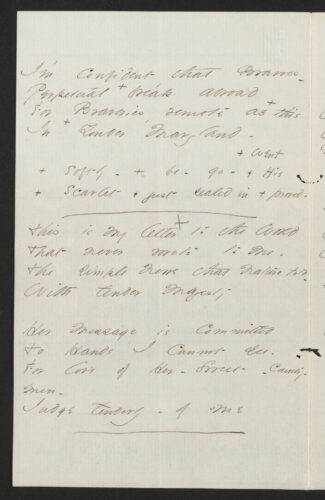 I'm confident that Bravoes -
Perpetual + break abroad
For Braveries, remote as + this
In + Yonder Maryland -
+ went
+ Softly - + be - go - + His
+ Scarlet - + just sealed in + proud -
This is my letter + to the World
That never wrote to Me -
The simple News that Nature told -
With tender Majesty
Her Message is Committed
To Hands I Cannot See -
For love of Her - Sweet - Country-
men -
Judge tenderly - of Me